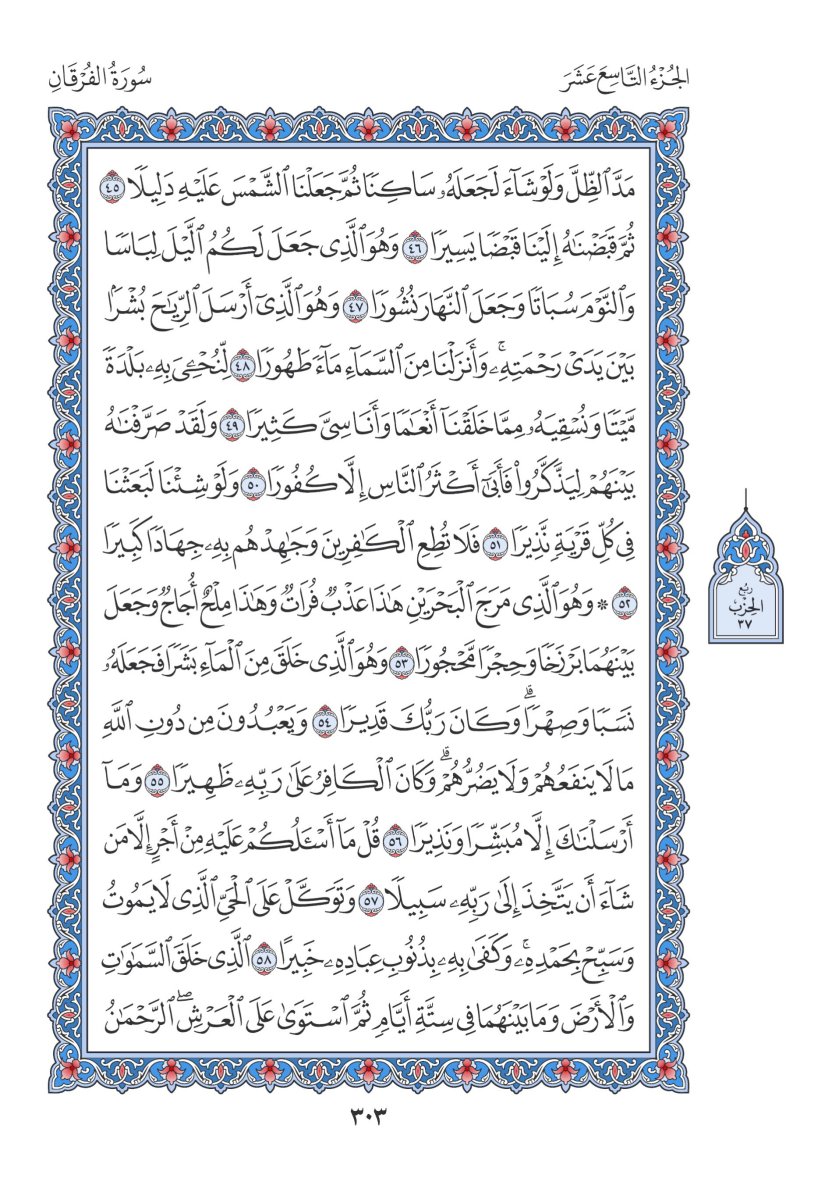 الجُزْءُ التَّاسِعَ عَشَرَ
سُورَةُ الفُرْقَانِ
مَدَّ ٱلظِّلَّ وَلَوۡ شَآءَ لَجَعَلَهُۥ سَاكِنٗا ثُمَّ جَعَلۡنَا ٱلشَّمۡسَ عَلَيۡهِ دَلِيلٗا ٤٥
ثُمَّ قَبَضۡنَٰهُ إِلَيۡنَا قَبۡضٗا يَسِيرٗا ٤٦ وَهُوَ ٱلَّذِي جَعَلَ لَكُمُ ٱلَّيۡلَ لِبَاسٗا
وَٱلنَّوۡمَ سُبَاتٗا وَجَعَلَ ٱلنَّهَارَ نُشُورٗا ٤٧ وَهُوَ ٱلَّذِيٓ أَرۡسَلَ ٱلرِّيَٰحَ بُشۡرَۢا
بَيۡنَ يَدَيۡ رَحۡمَتِهِۦۚ وَأَنزَلۡنَا مِنَ ٱلسَّمَآءِ مَآءٗ طَهُورٗا ٤٨ لِّنُحۡـِۧيَ بِهِۦ بَلۡدَةٗ
مَّيۡتٗا وَنُسۡقِيَهُۥ مِمَّا خَلَقۡنَآ أَنۡعَٰمٗا وَأَنَاسِيَّ كَثِيرٗا ٤٩ وَلَقَدۡ صَرَّفۡنَٰهُ
بَيۡنَهُمۡ لِيَذَّكَّرُواْ فَأَبَىٰٓ أَكۡثَرُ ٱلنَّاسِ إِلَّا كُفُورٗا ٥٠ وَلَوۡ شِئۡنَا لَبَعَثۡنَا
فِي كُلِّ قَرۡيَةٖ نَّذِيرٗا ٥١ فَلَا تُطِعِ ٱلۡكَٰفِرِينَ وَجَٰهِدۡهُم بِهِۦ جِهَادٗا كَبِيرٗا
٥٢ * وَهُوَ ٱلَّذِي مَرَجَ ٱلۡبَحۡرَيۡنِ هَٰذَا عَذۡبٞ فُرَاتٞ وَهَٰذَا مِلۡحٌ أُجَاجٞ وَجَعَلَ
بَيۡنَهُمَا بَرۡزَخٗا وَحِجۡرٗا مَّحۡجُورٗا ٥٣ وَهُوَ ٱلَّذِي خَلَقَ مِنَ ٱلۡمَآءِ بَشَرٗا فَجَعَلَهُۥ
نَسَبٗا وَصِهۡرٗاۗ وَكَانَ رَبُّكَ قَدِيرٗا ٥٤ وَيَعۡبُدُونَ مِن دُونِ ٱللَّهِ
مَا لَا يَنفَعُهُمۡ وَلَا يَضُرُّهُمۡۗ وَكَانَ ٱلۡكَافِرُ عَلَىٰ رَبِّهِۦ ظَهِيرٗا ٥٥ وَمَآ
أَرۡسَلۡنَٰكَ إِلَّا مُبَشِّرٗا وَنَذِيرٗا ٥٦ قُلۡ مَآ أَسۡـَٔلُكُمۡ عَلَيۡهِ مِنۡ أَجۡرٍ إِلَّا مَن
شَآءَ أَن يَتَّخِذَ إِلَىٰ رَبِّهِۦ سَبِيلٗا ٥٧ وَتَوَكَّلۡ عَلَى ٱلۡحَيِّ ٱلَّذِي لَا يَمُوتُ
وَسَبِّحۡ بِحَمۡدِهِۦۚ وَكَفَىٰ بِهِۦ بِذُنُوبِ عِبَادِهِۦ خَبِيرًا ٥٨ ٱلَّذِي خَلَقَ ٱلسَّمَٰوَٰتِ
وَٱلۡأَرۡضَ وَمَا بَيۡنَهُمَا فِي سِتَّةِ أَيَّامٖ ثُمَّ ٱسۡتَوَىٰ عَلَى ٱلۡعَرۡشِۖ ٱلرَّحۡمَٰنُ
رُبُع
الحِزْبِ
٣٧
٣٠٣